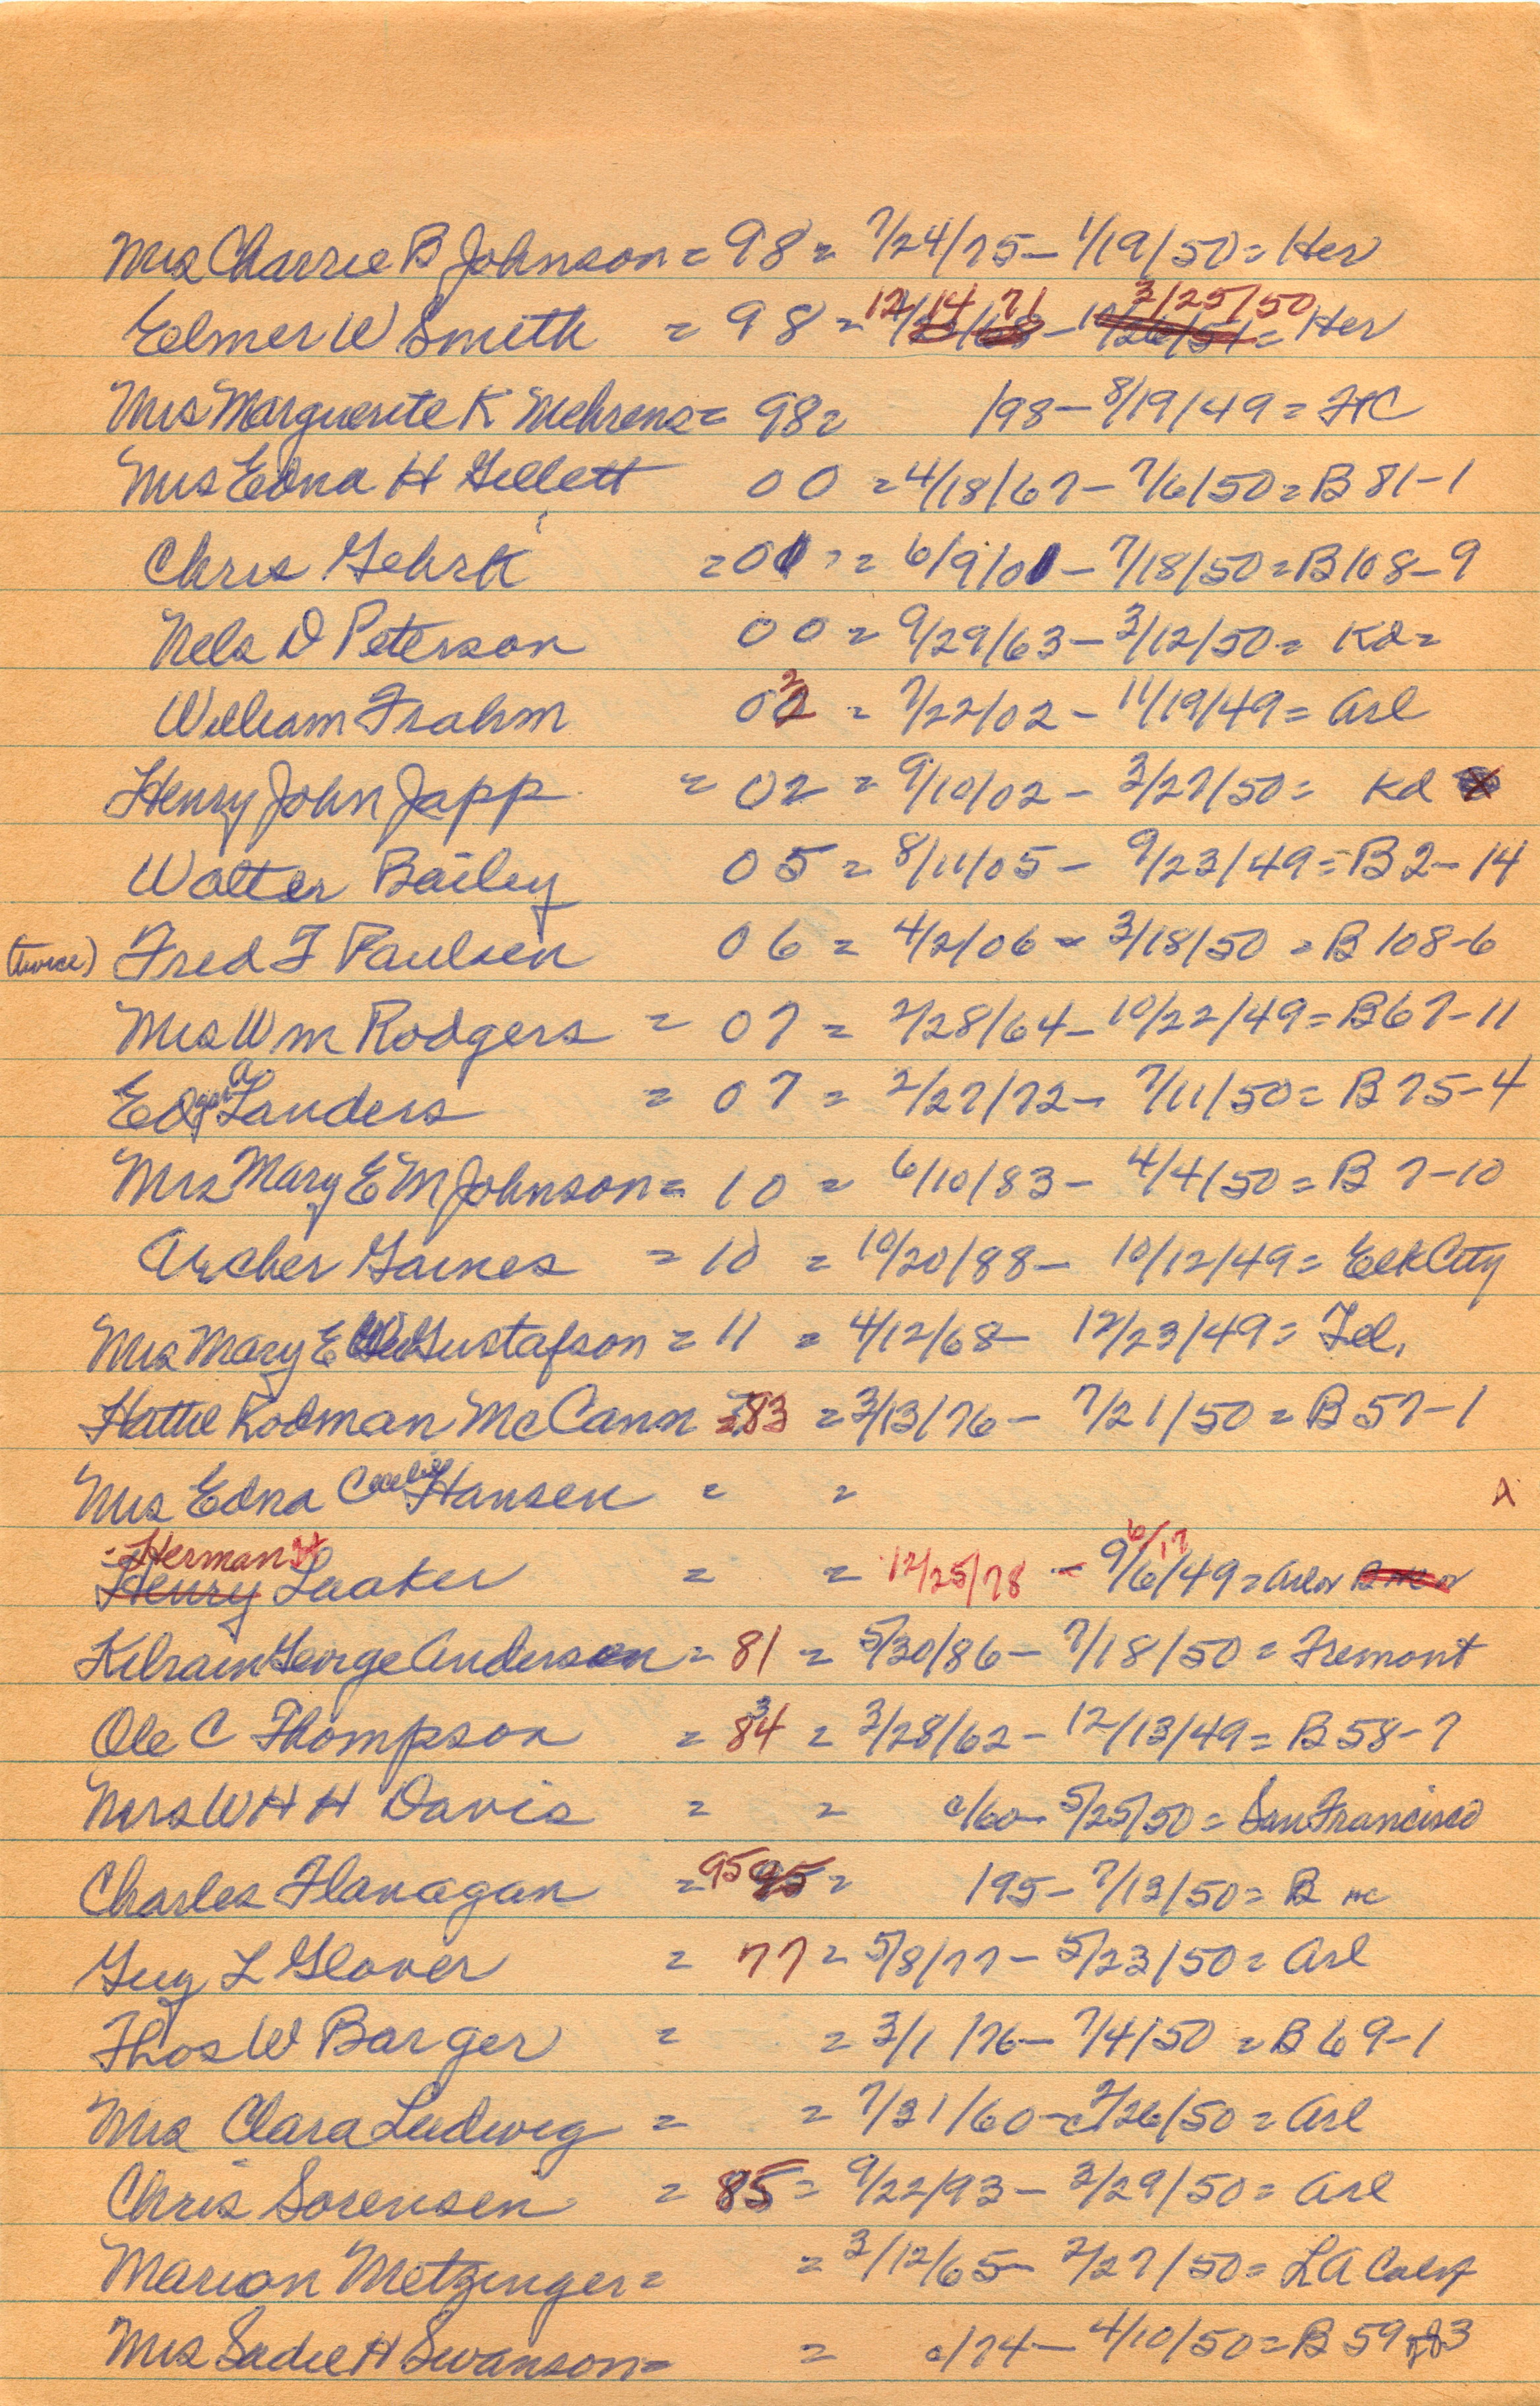 Mrs Charrie B Johnson = 98 = 7/24/75 - 1/19/50 = Her
Elmer W Smith = 98 = 12/14/71 - 3/25/50 = Her
Mrs Marguerite K Mehrens = 98 = /98 - 8/19/49 = HC
Mrs Edna H Gillett 00 = 4/18/67 - 7/6/50 = B 81-1
Chris Gehrk = 01 = 6/9/01 - 7/18/50 = B 108-9
Nels D Peterson 00 = 9/29/63 - 3/12/50 = Kd =
William Frahm 02 = 7/22/02 - 11/19/49 = Arl
Henry John Japp = 02 = 9/10/02 - 3/27/50 = Kd
Walter Bailey 05 = 8/11/05 - 9/23/49 = B 2-14
(twice) Fred F Paulsen 06 = 4/2/06 - 3/18/50 = B 108-6
Mrs Wm Rodgers = 07 = 2/28/64 - 10/22/49 = B 67-11
Edgar A Landers = 07 = 2/27/72 - 7/11/50 = B 75-4
Mrs Mary E M Johnson = 10 = 6/10/83 - 4/4/50 = B 7-10
Archer Gaines = 10 = 10/20/88 - 10/12/49 = Elk City
Mrs Mary E Gustafson = 11 = 4/12/68 - 12/23/49 = Tel.
Hattie Rodman McCann = 83 = 3/13/76 - 7/21/50 = B 57-1
Mrs Edna Cecelia Hansen = = A
Herman Henry Laaker = = 12/25/78 - 9/6/49 6/17 = Arl or
Kilrain George Anderson = 81 = 5/30/86 - 7/18/50 = Fremont
Ole C Thompson = 84 3 = 3/28/62 - 12/13/49 = B 58-7
Mrs W H H Davis = = c/60 - 5/25/50 = San Francisco
Charles Flanagan = 95 95 = 195 - 7/13/50 = B nc
Guy L Glover = 77 = 5/8/77 - 5/23/50 = Arl
Thos W Barger = = 3/1/76 - 7/4/50 = B 69-1
Mrs Clara Ludwig = = 7/31/60 - c 2/26/50 = Arl
Chris Sorensen = 85 = 9/22/93 - 3/29/50 = Arl
Marion Metzinger = = 3/12/65 - 2/27/50 = LA Calif
Mrs Sadie H Swanson = = c/74 - 4/10/50 = B 59 of 3